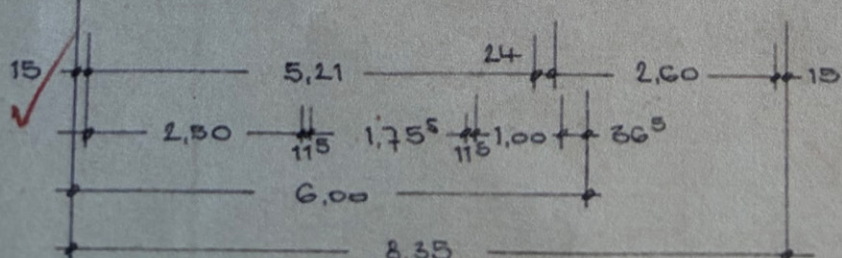 15 5,21 24 2,60 15
2,50 11⁵ 1,75⁵ 11⁵ 1,00 36⁵
6,00
8,35